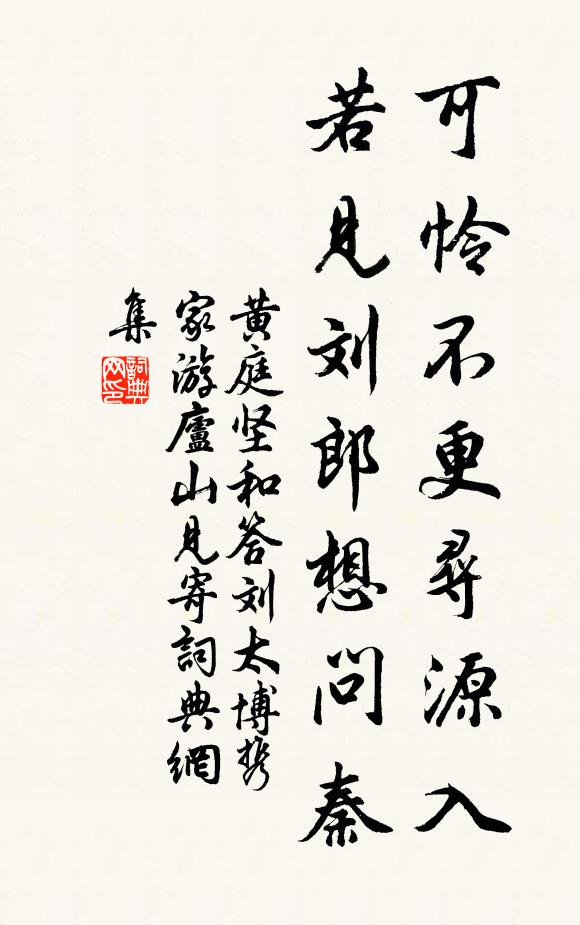 可怜不更尋源入
若见刘郎想问秦
黄庭坚和答刘太博携
家游廬山见寄詞典網
集
詞典网印